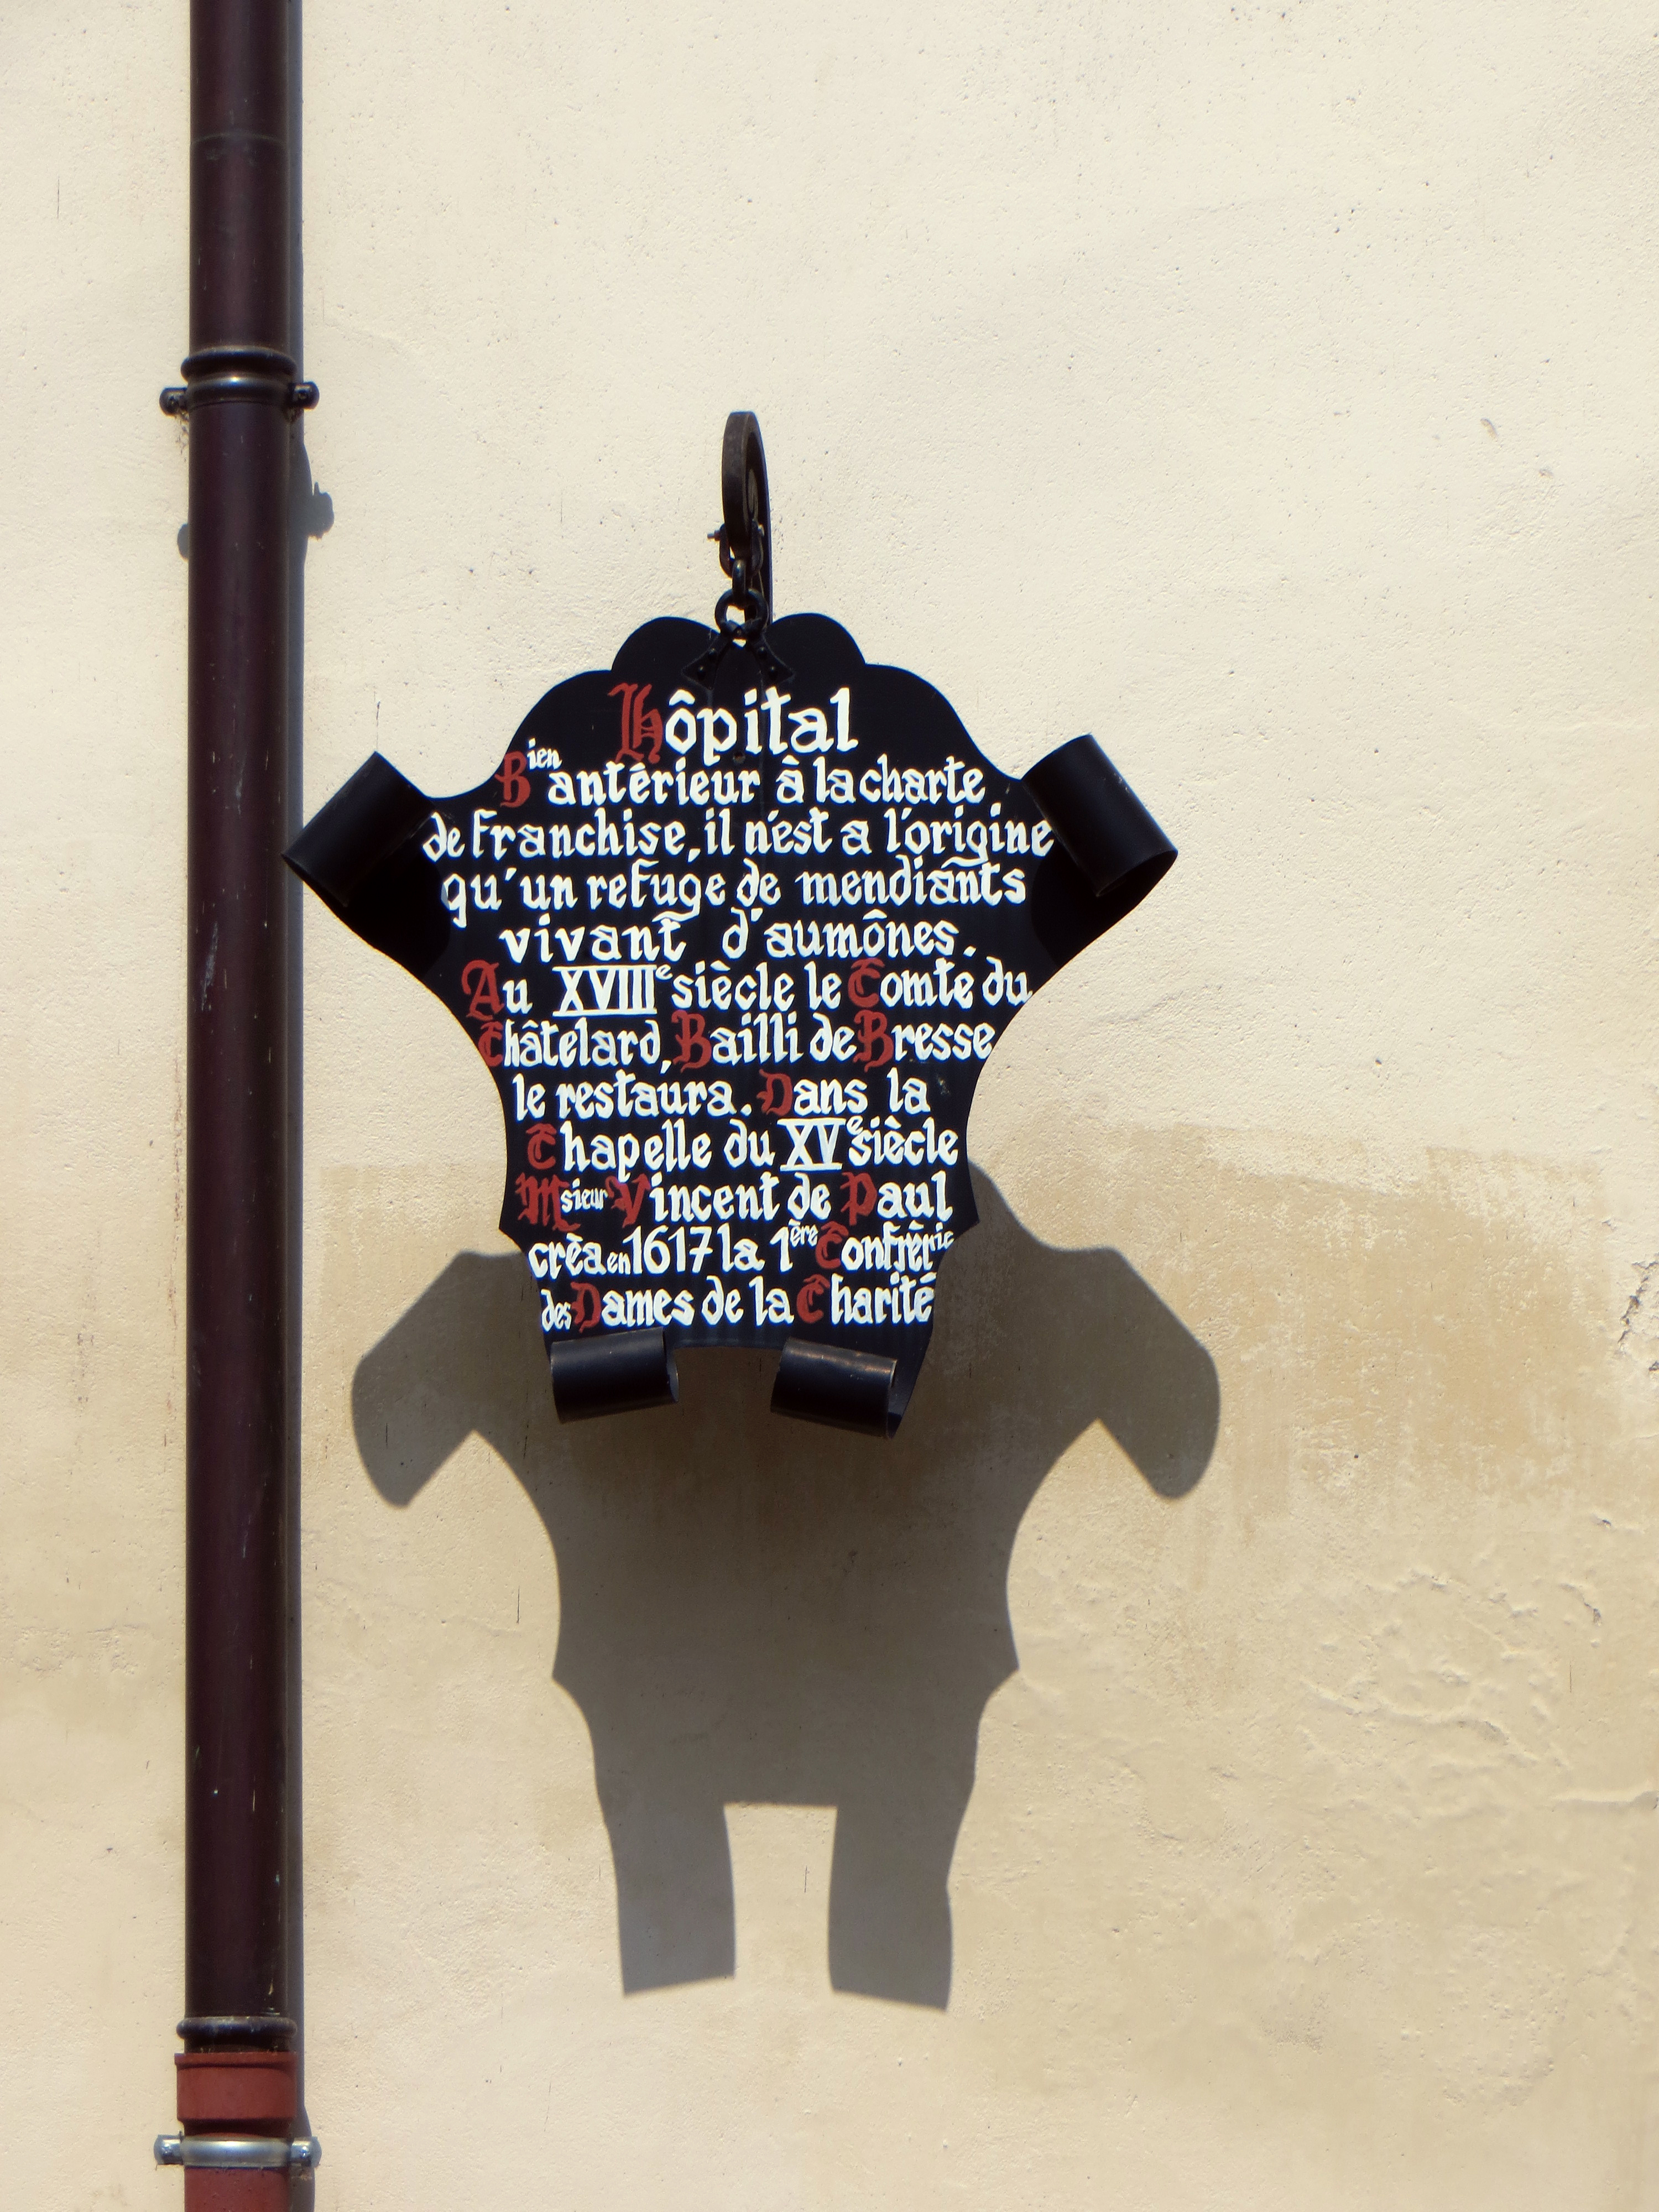 Hôpital
Bien antérieur à la charte
de franchise, il n'est a l'origine
qu'un refuge de mendiants
vivant d'aumônes.
Au XVIIIe siècle le Comte du
Châtelard, Bailli de Bresse
le restaura. Dans la
Chapelle du XVe siècle
Msieur Vincent de Paul
crèa en 1617 la 1ère Confrérie
des Dames de la Charité